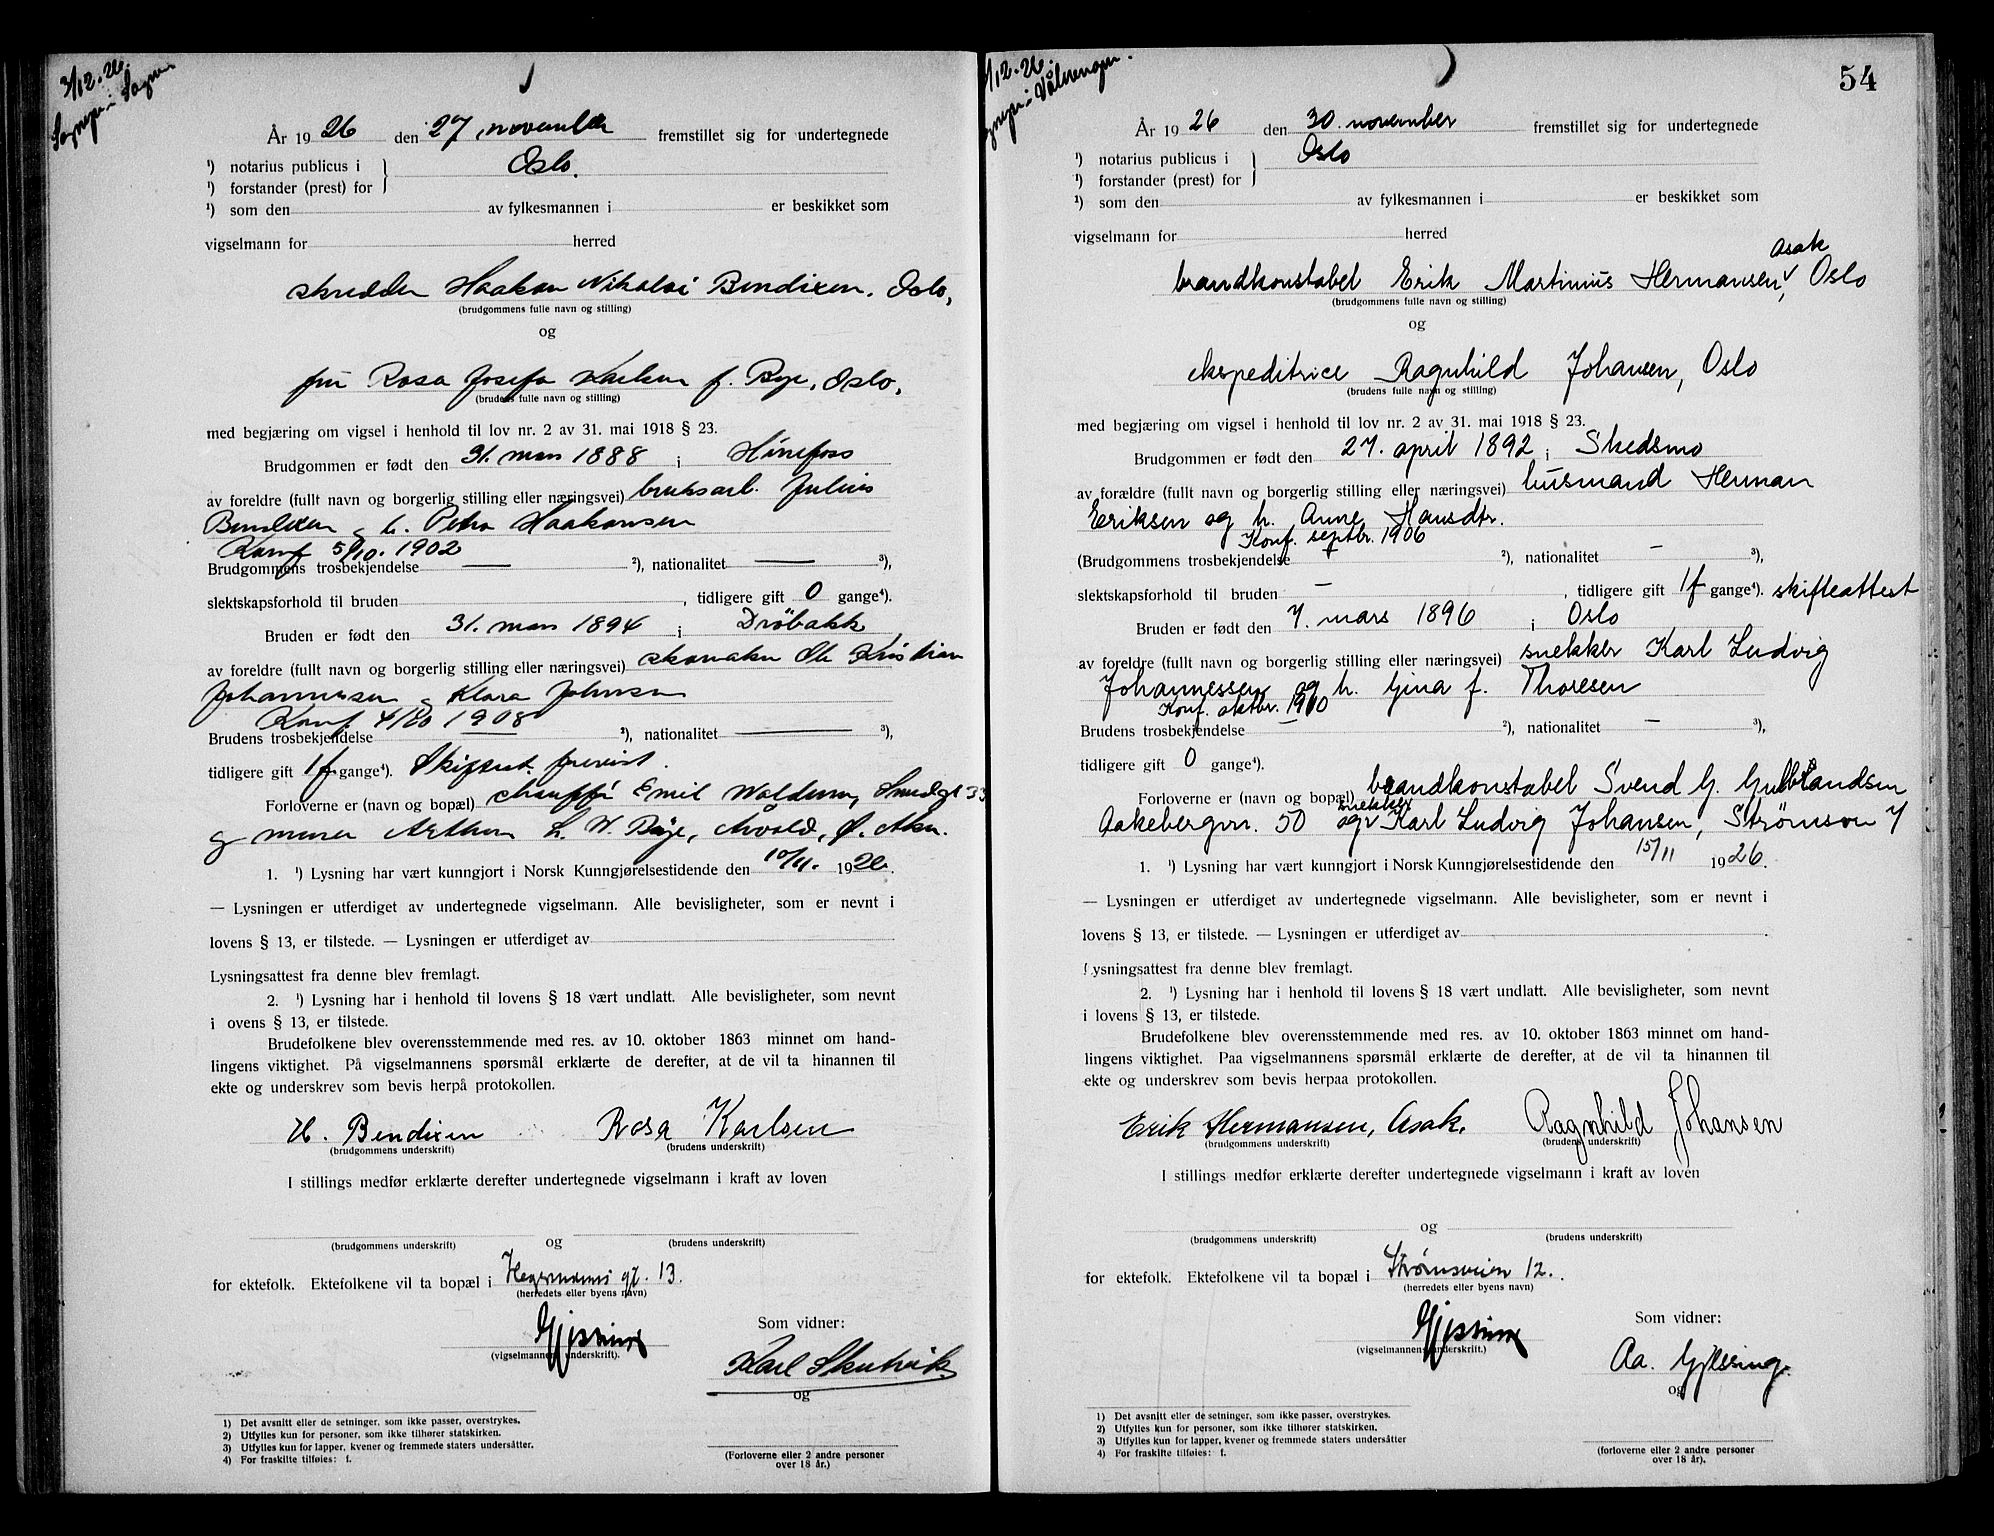 3/12.26.
Sogn
År 1926 den 27 november fremstillet sig for undertegnede
¹) notarius publicus i } Oslo.
¹) forstander (prest) for
¹) som den av fylkesmannen i er beskikket som
vigselmann for herred
skredder Haakon Nikolai Bendixen, Oslo,
(brudgommens fulle navn og stilling)
og
fru Rosa Josefa Karlsen f. Bye, Oslo,
(brudens fulle navn og stilling)
med begjæring om vigsel i henhold til lov nr. 2 av 31. mai 1918 § 23.
Brudgommen er født den 31. mars 1888 i Hönefoss
av foreldre (fullt navn og borgerlig stilling eller næringsvei) bruksarb. Julius
Bendixen og h. Petra Haakonsen
Konf 5/10. 1902
Brudgommens trosbekjendelse — ²), nationalitet — ³),
slektskapsforhold til bruden , tidligere gift 0 gange⁴).
Bruden er født den 31. mars 1894 i Dröbakk
av foreldre (fullt navn og borgerlig stilling eller næringsvei) skomaker Ole Kristian
Johannessen og Klara Johnsen
Konf 4/10 1908
Brudens trosbekjendelse — ²), nationalitet — ³),
tidligere gift 1f gange⁴). Skifteat. forevist.
Forloverne er (navn og bopæl) chauffør Emil Waldum, Smedgt 33
og murer Arthur L. W. Bye, Arvold, Ø. Aker.
1. ¹) Lysning har vært kunngjort i Norsk Kunngjørelsestidende den 10/11. 1926.
— Lysningen er utferdiget av undertegnede vigselmann. Alle bevisligheter, som er nevnt i
lovens § 13, er tilstede. — Lysningen er utferdiget av
Lysningsattest fra denne blev fremlagt.
2. ¹) Lysning har i henhold til lovens § 18 vært undlatt. Alle bevisligheter, som nevnt
i ovens § 13, er tilstede.
Brudefolkene blev overensstemmende med res. av 10. oktober 1863 minnet om hand-
lingens viktighet. På vigselmannens spørsmål erklærte de derefter, at de vil ta hinannen til
ekte og underskrev som bevis herpå protokollen.
H. Bendixen Rosa Karlsen
(brudgommens underskrift) (brudens underskrift)
I stillings medfør erklærte derefter undertegnede vigselmann i kraft av loven
og
(brudgommens underskrift) (brudens underskrift)
for ektefolk. Ektefolkene vil ta bopæl i Hegermanns gt. 13.
(herredets eller byens navn)
Gjessing
(vigselmannens underskrift).
Som vidner:
Karl Skutvik
og
1) Det avsnitt eller de setninger, som ikke passer, overstrykes.
2) Utfylles kun for personer, som ikke tilhører statskirken.
3) Utfylles kun for lapper, kvener og fremmede staters undersåtter.
4) For fraskilte tilføies: f.
(Forloverne eller 2 andre personer
over 18 år.)
/12.26.
i Vålerengen.
54
År 1926 den 30. november fremstillet sig for undertegnede
¹) notarius publicus i } Oslo
¹) forstander (prest) for
¹) som den av fylkesmannen i er beskikket som
vigselmann for herred
Asak
brandkonstabel Erik Martinius Hermansen, Oslo
(brudgommens fulle navn og stilling)
og
ekspeditrice Ragnhild Johansen, Oslo
(brudens fulle navn og stilling)
med begjæring om vigsel i henhold til lov nr. 2 av 31. mai 1918 § 23.
Brudgommen er født den 27. april 1892 i Skedsmo
av forældre (fullt navn og borgerlig stilling eller næringsvei) husmand Herman
Eriksen og h. Anne Hansdtr.
Konf. septbr. 1906
(Brudgommens trosbekjendelse — ²), nationalitet — ³),
slektskapsforhold til bruden — , tidligere gift 1f gange⁴). skifteattest
Bruden er født den 7. mars 1896 i Oslo
av foreldre (fullt navn og borgerlig stilling eller næringsvei) snekker Karl Ludvig
Johannessen og h. Gina f. Thoresen
Konf. oktbr. 1910
Brudens trosbekjendelse — ²), nationalitet — ³),
tidligere gift 0 gange⁴).
Forloverne er (navn og bopæl) brandkonstabel Svend G. Gulbrandsen
snekker
Aakebergvn. 50 og Karl Ludvig Johansen, Strømsvn 7
1. ¹) Lysning har vært kunngjort i Norsk Kunngjørelsestidende den 15/11 1926.
— Lysningen er utferdiget av undertegnede vigselmann. Alle bevisligheter, som er nevnt i
lovens § 13, er tilstede. — Lysningen er utferdiget av
Lysningsattest fra denne blev fremlagt.
2. ¹) Lysning har i henhold til lovens § 18 vært undlatt. Alle bevisligheter, som nevnt
i lovens § 13, er tilstede.
Brudefolkene blev overensstemmende med res. av 10. oktober 1863 minnet om hand-
lingens viktighet. Paa vigselmannens spørsmål erklærte de derefter, at de vil ta hinannen til
ekte og underskrev som bevis herpaa protokollen.
Erik Hermansen, Asak. Ragnhild Johansen
(brudgommens underskrift) (brudens underskrift)
I stillings medfør erklærte derefter undertegnede vigselmann i kraft av loven
og
(brudgommens underskrift) (brudens underskrift)
for ektefolk. Ektefolkene vil ta bopæl i Strømsveien 12.
(herredets eller byens navn)
Gjessing
(vigselmannens underskrift.)
Som vidner:
Aa. Gjessing.
og
1) Det avsnitt eller de setninger, som ikke passer, overstrykes.
2) Utfylles kun for personer, som ikke tilhører statskirken.
3) Utfylles kun for lapper, kvener og fremmede staters undersåtter
4) For fraskilte tilføies: f.
(forloverne eller 2 andre personer
over 18 år).